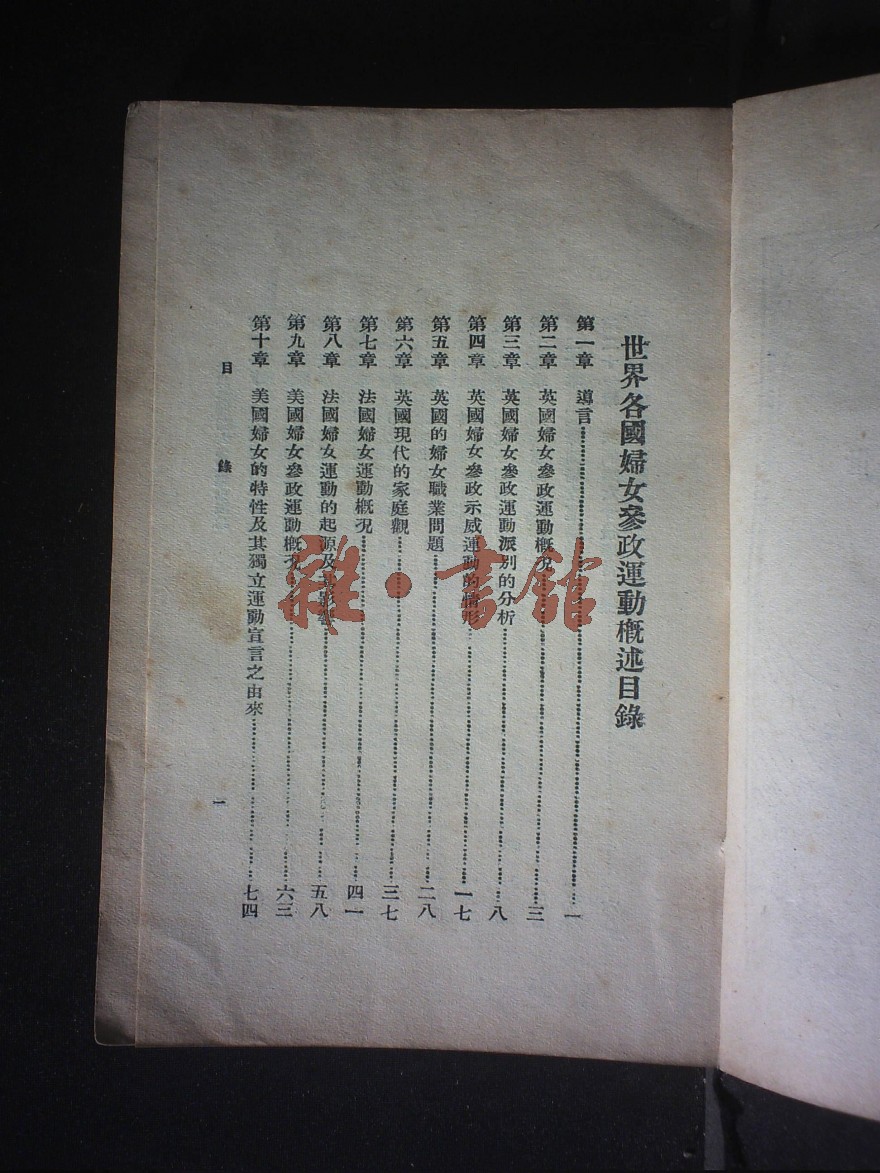 世界各國婦女參政運動概述目錄
第一章 導言 一
第二章 英國婦女參政運動概況 三
第三章 英國婦女參政運動派別的分析 八
第四章 英國婦女參政示威運動的情形 一七
第五章 英國的婦女職業問題 二八
第六章 英國現代的家庭觀 三七
第七章 法國婦女運動概況 四一
第八章 法國婦女運動的起源及其影響 五八
第九章 美國婦女參政運動概況 六三
第十章 美國婦女的特性及其獨立運動宣言之由來 七四
目錄 一
雜·書館